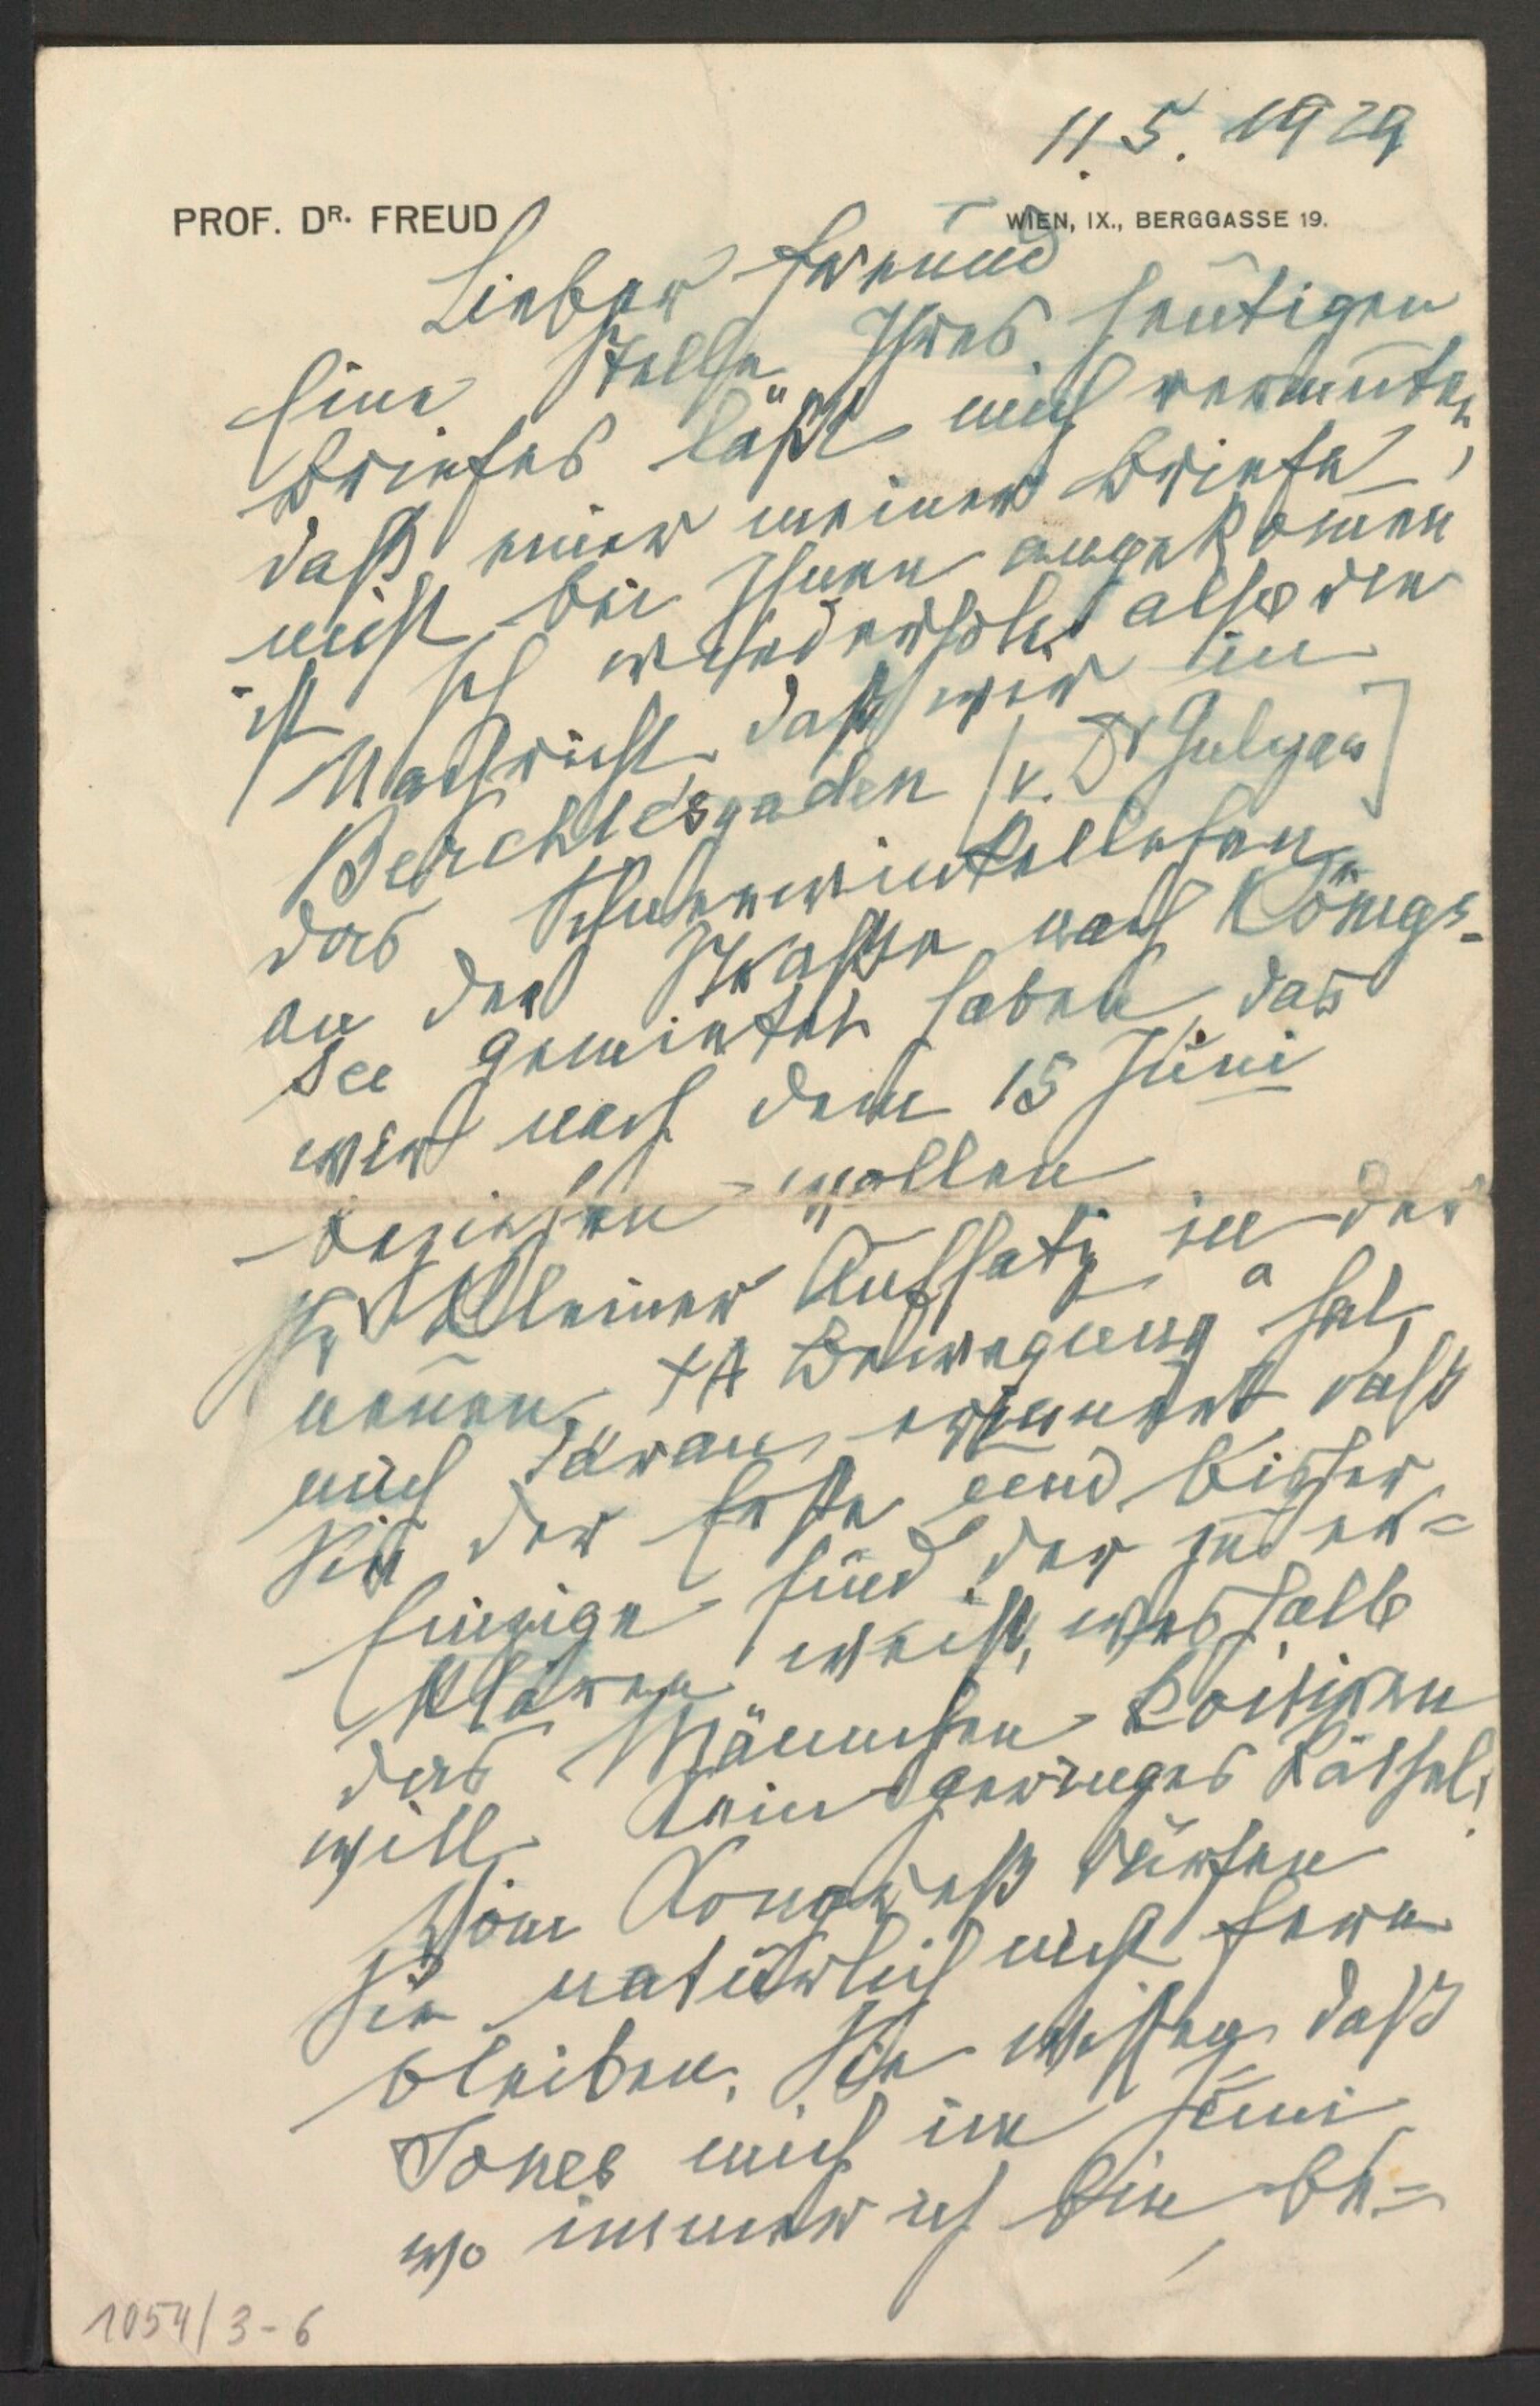 11.5.1929
PROF. DR. FREUD
WIEN, IX., BERGGASSE 19.
Lieber Freund
Eine Stelle Ihres heutigen
Briefes läßt mich vermuten,
daß einer meiner Briefe
nicht bei Ihnen angekommen
ist. Ich wiederhole also die
Nachricht, daß wir in
Berchtesgaden (v. Dr
das Schneewinkellehen
an der Straße nach Königs-
see gemietet haben, das
wir nach dem 15 Juni
beziehen wollen
Ihr kleiner Aufsatz in der
neuen ΨA Bewegung hat
mich daran erinnert daß
Sie der Erste und bisher
Einzige sind der zu er-
klären weiß, weshalb
das Männchen koitiren
will. Kein geringes Rätsel!
Vom Kongreß dürfen
Sie natürlich nicht fern
bleiben. Sie wissen, daß
Jones mich im Juni
wo immer ich bin, be-
1054/3-6